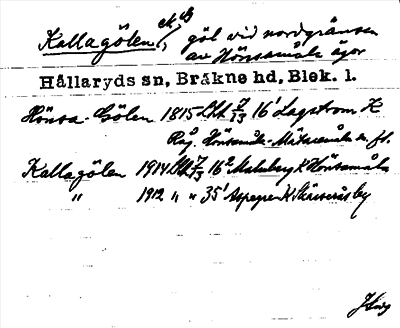 Kallagölen, ek, B göl vid nordgränsen
av Hönsamåla ägor
Hällaryds sn, Bräkne hd, Blek. l.
Hönsa-Gölen 1815 Lht 7/13 16¹ Lagström K
Råg. Hönsamåla - Mätaremåla m. fl.
Kallagölen 1914 Lht 7/3 16² Malmberg K Hönsamåla
" 1912 " " 35¹ Aspegren K